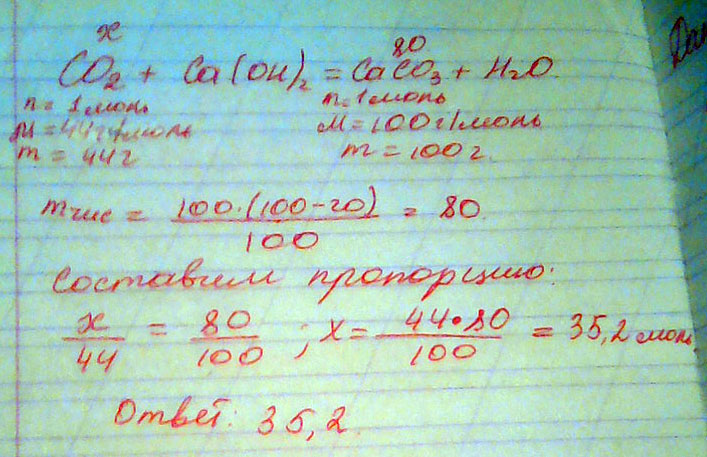 x 80
CO₂ + Ca(OH)₂ = CaCO₃ + H₂O
n = 1 моль n = 1 моль
M = 44 г/моль M = 100 г/моль
m = 44 г m = 100 г
m чис = 100·(100-20) / 100 = 80
Составим пропорцию:
x/44 = 80/100 ; x = 44·80/100 = 35,2 моль
Ответ: 35,2